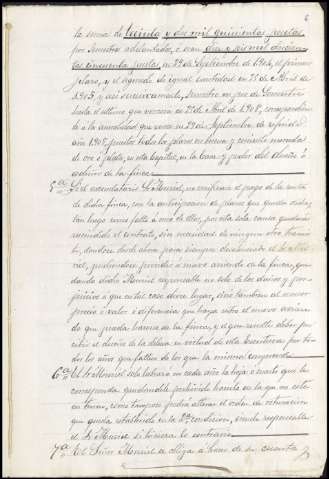 6
la suma de treinta y dos mil quinientas pesetas
por semestres adelantados, ó sean diez y seis mil doscien-
tas cincuenta pesetas, en 29 de Septiembre de 1904, el primer
plazo, y el segundo de igual cantidad en 25 de Abril de
1905, y así sucesivamente, semestre en pos de semestre
hasta el último que vencerá en 25 de Abril de 1908, correspondien-
te á la anualidad que vence en 29 de Septiembre de referido
año 1908, puestos todos los plazos en buena y corriente moneda
de oro ó plata, en esta Capital, en la casa y poder del dueño ó
de la finca
5ª Si el arrendatario Sr. Monsiel, no verificara el pago de la renta
de dicha finca, con la anticipación de plazos que quedan
tan luego como falte á uno de ellos, por esta sola causa quedará
rescindido el contrato, sin necesidad de ningun otro trámi-
te, dándose desde ahora para siempre
pudiendo proceder á nuevo arriendo de la finca, que-
dando dicho Monsiel responsable no solo de los daños y per-
juicios á que este caso diere lugar, sino tambien al menor
precio ó valor ó diferencia que haya entre el nuevo arrien-
do que pueda hacerse de la finca, y el que debe per-
cibir el dueño de la dehesa en virtud de esta Escritura por to-
dos los años que falten de los que la misma comprende
6ª El Sr. Monsiel solo labrará en cada año la hoja ó cuarto que le
corresponda quedándole prohibido hacerlo en la que no este
en turno, como tampoco podrá alterar el orden de
que queda establecido en la 2ª condicion, siendo responsable
el Sr. Monsiel si hiciera lo contrario
7ª El Señor Monsiel se obliga á hacer de su cuenta